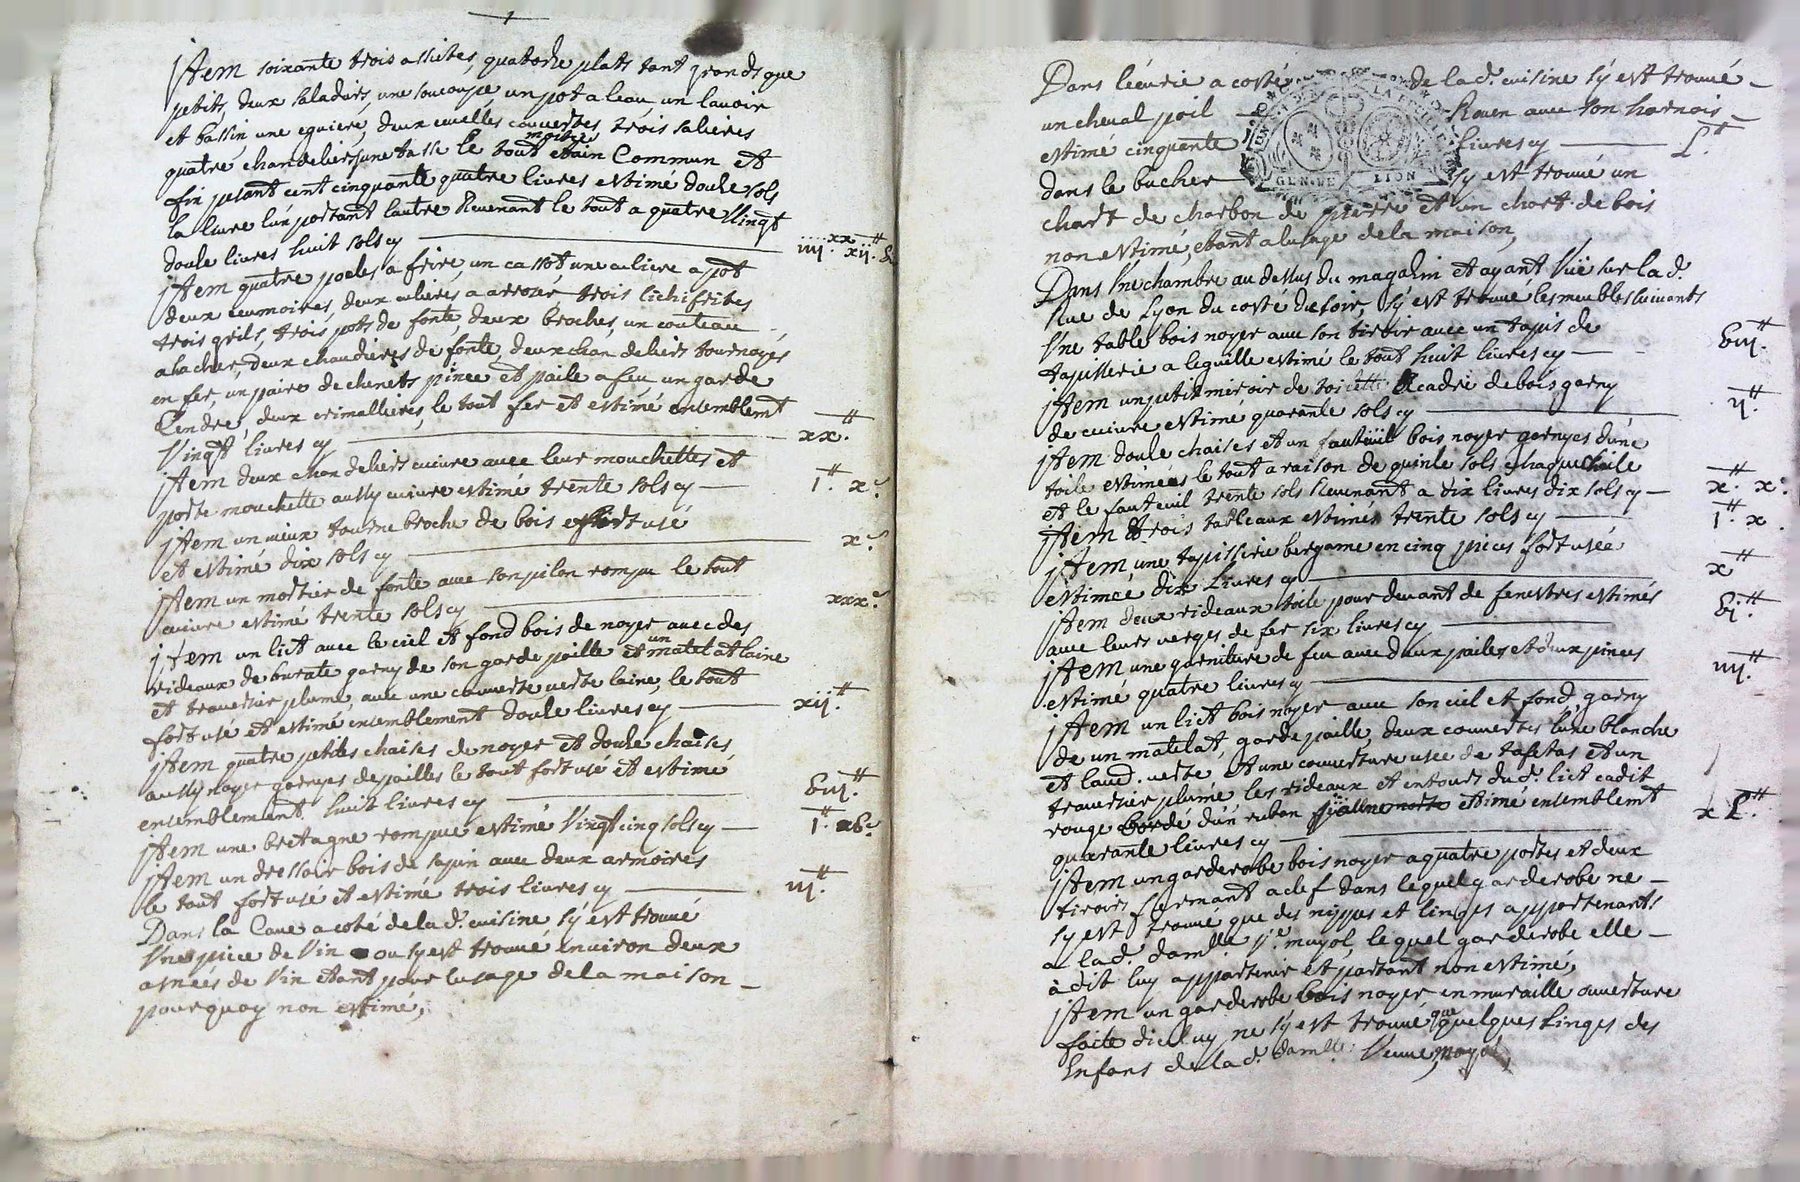 jtem soixante trois assiètes, quatorze plats tant grands que
petits, deux saladiers, une soucoupe un pot a leau, un lavoir
et bassin une eguiere, deux ecuelles couvertes, trois salieres
quatre chandeliers, une tasse le tout moitié etain Commun et
fin pesant cent cinquante quatre livres estimé douze sols
la livre lun portant lautre Revenant le tout a quatre Vingt
douze livres huit sols cy ——— iiij.xx xij.tt
jtem quatre poeles a frire, un cassot une culiere a pot
deux ecumoires, deux culieres a arroser trois lichifrites
trois grils, trois pots de fonte, deux broches, un couteau
a hacher, deux chaudieres de fonte, deux chandeliers tournoyés
en fer, un paire de chenets pince et paile a feu, un garde
Cendre, deux crimallieres, le tout fer et estimé ensemblemt
Vingt livres cy ——— xx.tt
jtem deux chandeliers cuivre avec leur mouchettes et
porte mouchette aussy cuivre estimé trente sols cy — 1.tt x.s
jtem un vieux tourne broche de bois fort usé
et estimé dix sols cy ——— x.s
jtem un mortier de fonte avec son pilon rompu le tout
cuivre estimé trente sols cy ——— xxx.s
jtem un lict avec le ciel et fond bois de noyer avec des
rideaux de burate garny de son garde paille et un matelat laine
et traversier plume, avec une couverte verte laine, le tout
fort usé et estimé ensemblement douze livres cy ——— xij.tt
jtem quatre petites chaises de noyer et douze chaises
aussy noyer garnyes de pailles le tout fort usé et estimé
ensemblement huit livres cy ——— viij.tt
jtem une bretagne rompuë estimé Vingt cinq sols cy — 1.tt
jtem un dressoir bois de sapin avec deux armoires
le tout fort usé et estimé trois livres cy ——— iij.tt
Dans la Cave a coté de la d. cuisine s'y est trouvé
Une piece de Vin ou s'y est trouvé environ deux
asnées de Vin etant pour lusage de la maison —
pourquoy non estimé;
Dans lécurie a costé de la d. cuisine s'y est trouvé —
un cheval poil Rouen avec son harnois
estimé cinquante livres cy ——— L.tt
GENERALITE LYON
dans le bucher s'y est trouvé un
chart de charbon de pierre et un chart de bois
non estimé, etant a lusage de la maison,
Dans Une chambre au dessus du magazin et ayant Vüë sur la d.
Rue de Lyon du costé du soir, s'y est trouvé les meubles suivants
Une table bois noyer avec son tiroir avec un tapis de
tapisserie a leguille estimé le tout huit livres cy — viij.tt
jtem un petit miroir de toilette a cadre de bois garny
de cuivre estime quarante sols cy ——— ij.tt
jtem douze chaises et un fauteüil bois noyer garnyes d'une
toile estimées le tout a raison de quinze sols chaque chaise
et le fauteuil trente sols Revenant a dix livres dix sols cy — x.tt x.s
jtem trois tableaux estimés trente sols cy ——— 1.tt x
jtem une tapisserie bergame en cinq pieces fort usée
estimée dix livres cy ——— x.tt
jtem deux rideaux toile pour devant de fenestres estimés
avec leurs verges de fer six livres cy ——— vj.tt
jtem une garniture de feu avec deux pailes et deux pinces
estimé quatre livres cy ——— iiij.tt
jtem un lict bois noyer avec son ciel et fond, garny
de un matelat, garde paille, deux couvertes lune blanche
et laud. verte et une couverture usée de tafetas et un
traversier plume les rideaux et entours du d. lict cadit
rouge bordé d'un ruban estimé ensemblemt
quarante livres cy ——— xL.tt
jtem un garderobe bois noyer a quatre portes et deux
tiroirs fermant a clef dans lequel garderobe ne —
s'y est trouvé que des nippes et linges appartenants
a la d. damlle ve. mayol, lequel garderobe elle —
à dit luy appartenir et partant non estimé,
jtem un garderobe bois noyer en muraille ouverture
faite diceluy ne s'y est trouvé que quelques linges des
Enfans de la d. damlle. Veuve mayol,